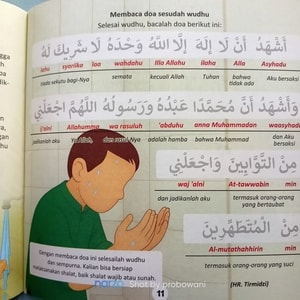 Membaca doa sesudah wudhu
Selesai wudhu, bacalah doa berikut ini:
أَشْهَدُ أَنْ لَا إِلَهَ إِلَّا اللَّهُ وَحْدَهُ لَا شَرِيكَ لَهُ
lahu syariika laa wahdahu Illa Allahu ilaha Alla Asyhadu
tiada sekutu bagi-Nya semata kecuali Allah Tuhan bahwa tidak ada Aku bersaksi
وَأَشْهَدُ أَنْ مُحَمَّدًا عَبْدُهُ وَرَسُولُهُ اللَّهُمَّ اجْعَلْنِي
ij'alni Allahumma wa rasuluh 'abduhu anna Muhammadan waasyhadu
jadikanlah aku Ya Allah dan rasul-Nya adalah hamba bahwa Muhammad dan Aku bersaksi
مِنَ التَّوَّابِينَ وَاجْعَلْنِي
waj 'alni At-tawwabin min
dan jadikanlah aku termasuk orang-orang yang bertaubat
مِنَ الْمُتَطَهِّرِينَ
Al-mutathahhirin min
termasuk orang-orang yang suci
(HR. Tirmidzi)
Dengan membaca doa ini selesailah wudhu
dan sempurna. Kalian bisa bersiap
melaksanakan shalat, baik shalat wajib atau sunah.
11
Shot by probowani